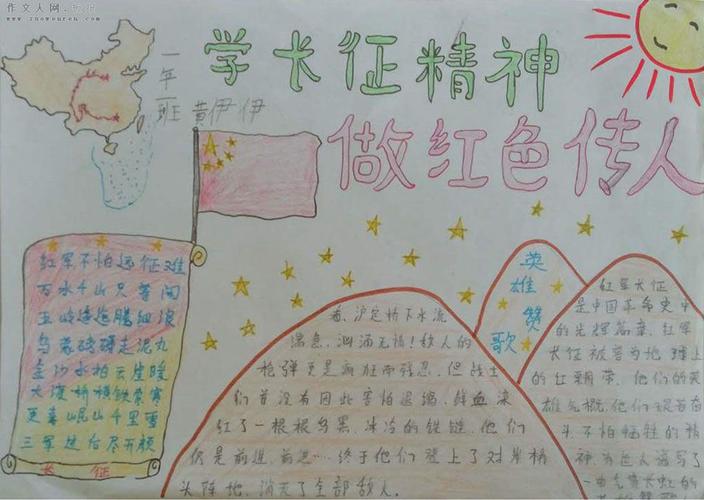 作文人网
www.zuowenren.com
学长征精神
一年1班 黄伊伊
做红色传人
红军不怕远征难
万水千山只等闲
五岭逶迤腾细浪
乌蒙磅礴走泥丸
金沙水拍云崖暖
大渡桥横铁索寒
更喜岷山千里雪
三军过后尽开颜
长征
英雄赞歌
看,沪定桥下水流
湍急,汹涌无情!敌人的
枪弹更是疯狂而残忍,但战士
们并没有因此害怕退缩,鲜血染
红了一根根乌黑、冰冷的铁链,他们
仍是前进,前进…终于他们登上了对岸桥
头阵地,消灭了全部敌人。
红军长征
是中国革命史中
的光辉篇章,红军
长征被誉为地球上
的红飘带,他们的英
雄气概,他们艰苦奋
斗不怕牺牲的精
神,为世人谱写了
一曲气贯长虹的